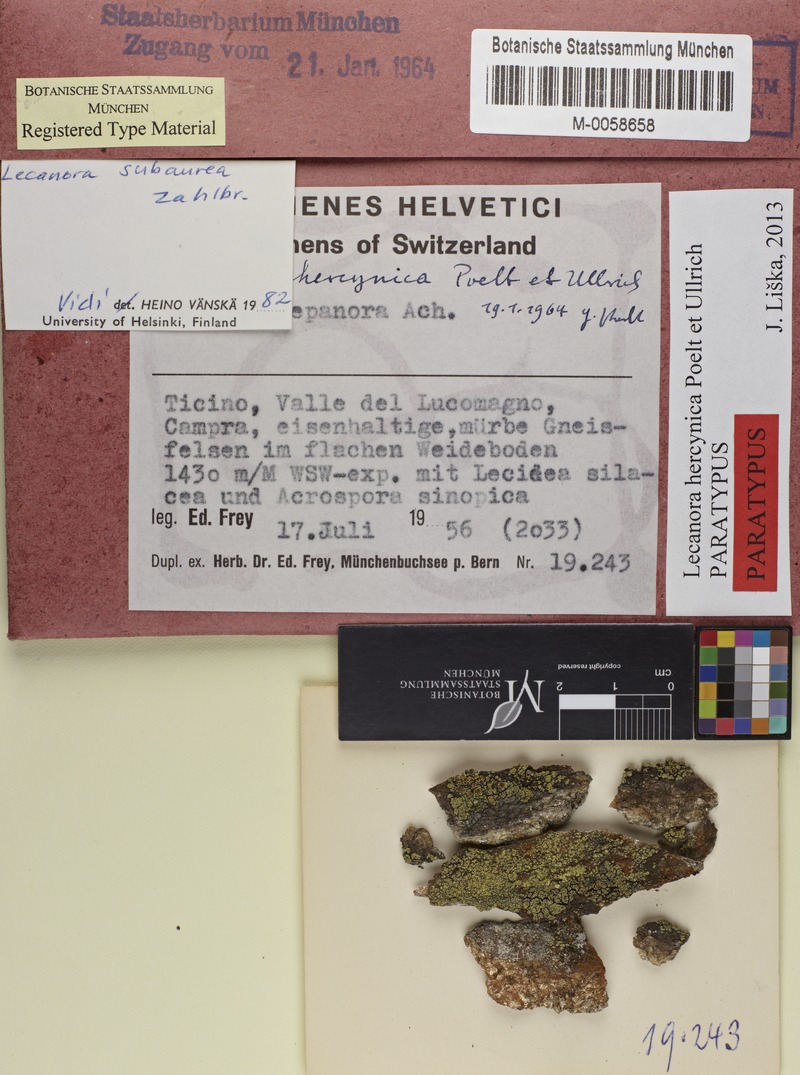 Staatsherbarium München
Zugang vom
21. Jan. 1964
Botanische Staatssammlung München
M-0058658
BOTANISCHE STAATSSAMMLUNG
MÜNCHEN
Registered Type Material
Lecanora subaurea
Zahlbr.
Vidi det. HEINO VÄNSKÄ 1982
University of Helsinki, Finland
HENES HELVETICI
hens of Switzerland
hercynica Poelt et Ullrich
epanora Ach. 19.1.1964 J. Poelt
Ticino, Valle del Lucomagno,
Campra, eisenhaltige,mürbe Gneis-
felsen im flachen Weideboden
1430 m/M WSW-exp. mit Lecidea sila-
cea und Acrospora sinopica
leg. Ed. Frey 17.Juli 1956 (2033)
Dupl. ex. Herb. Dr. Ed. Frey, Münchenbuchsee p. Bern Nr. 19.243
Lecanora hercynica Poelt et Ullrich
PARATYPUS
PARATYPUS
J. Liška, 2013
BOTANISCHE
STAATSSAMMLUNG
MÜNCHEN
M
copyright reserved
0 1 2
cm
19.243